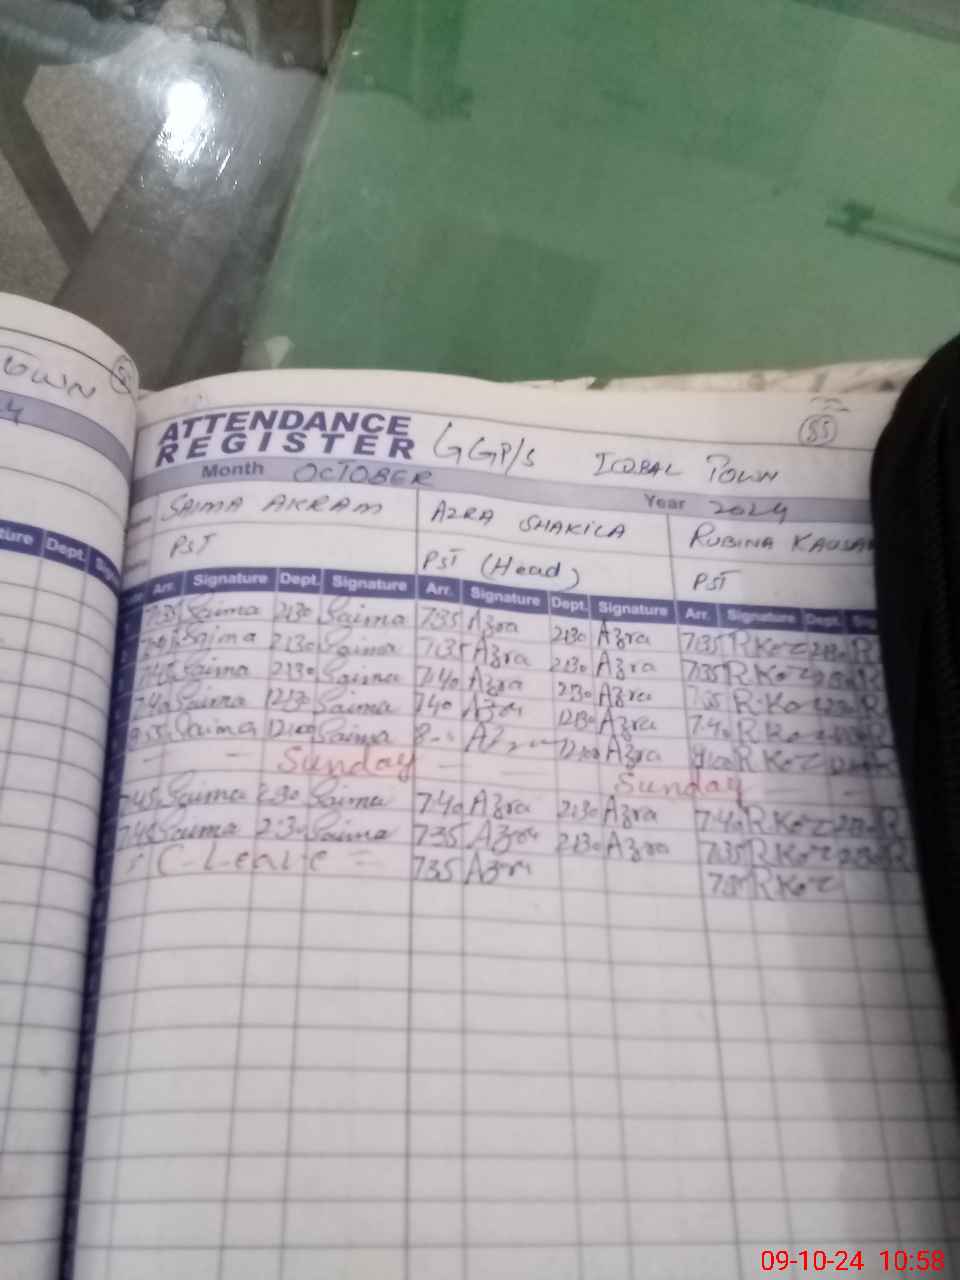 TOWN
ATTENDANCE
REGISTER GGP/S IQBAL TOWN
55
Month OCTOBER Year 2024
SAIMA AKRAM AZRA SHAKILA RUBINA KAUSAR
PST PST (Head) PST
ture Dept.
Arr. Signature Dept. Signature Arr. Signature Dept. Signature Arr. Signature Dept.
7:35 Saima 2:30 Saima 7:35 Azra 2:30 Azra 7:35 R Koz 2:30
Saima 2:30 Saima 7:35 Azra 2:30 Azra 7:35 R Koz
7:45 Saima 2:30 Saima 7:40 Azra 2:30 Azra 7:35 R Koz
7:40 Saima 12:30 Saima 7:40 Azra 12:30 Azra 7:40 R Koz
Saima 12:00 Saima 8:00 Azra 12:00 Azra R Koz
Sunday Sunday
7:45 Saima 2:30 Saima 7:40 Azra 2:30 Azra 7:40 R Koz 2:30
7:40 Saima 2:30 Saima 7:35 Azra 2:30 Azra 7:35 R Koz 2:30
C-Leave 7:35 Azra R Koz
09-10-24 10:58